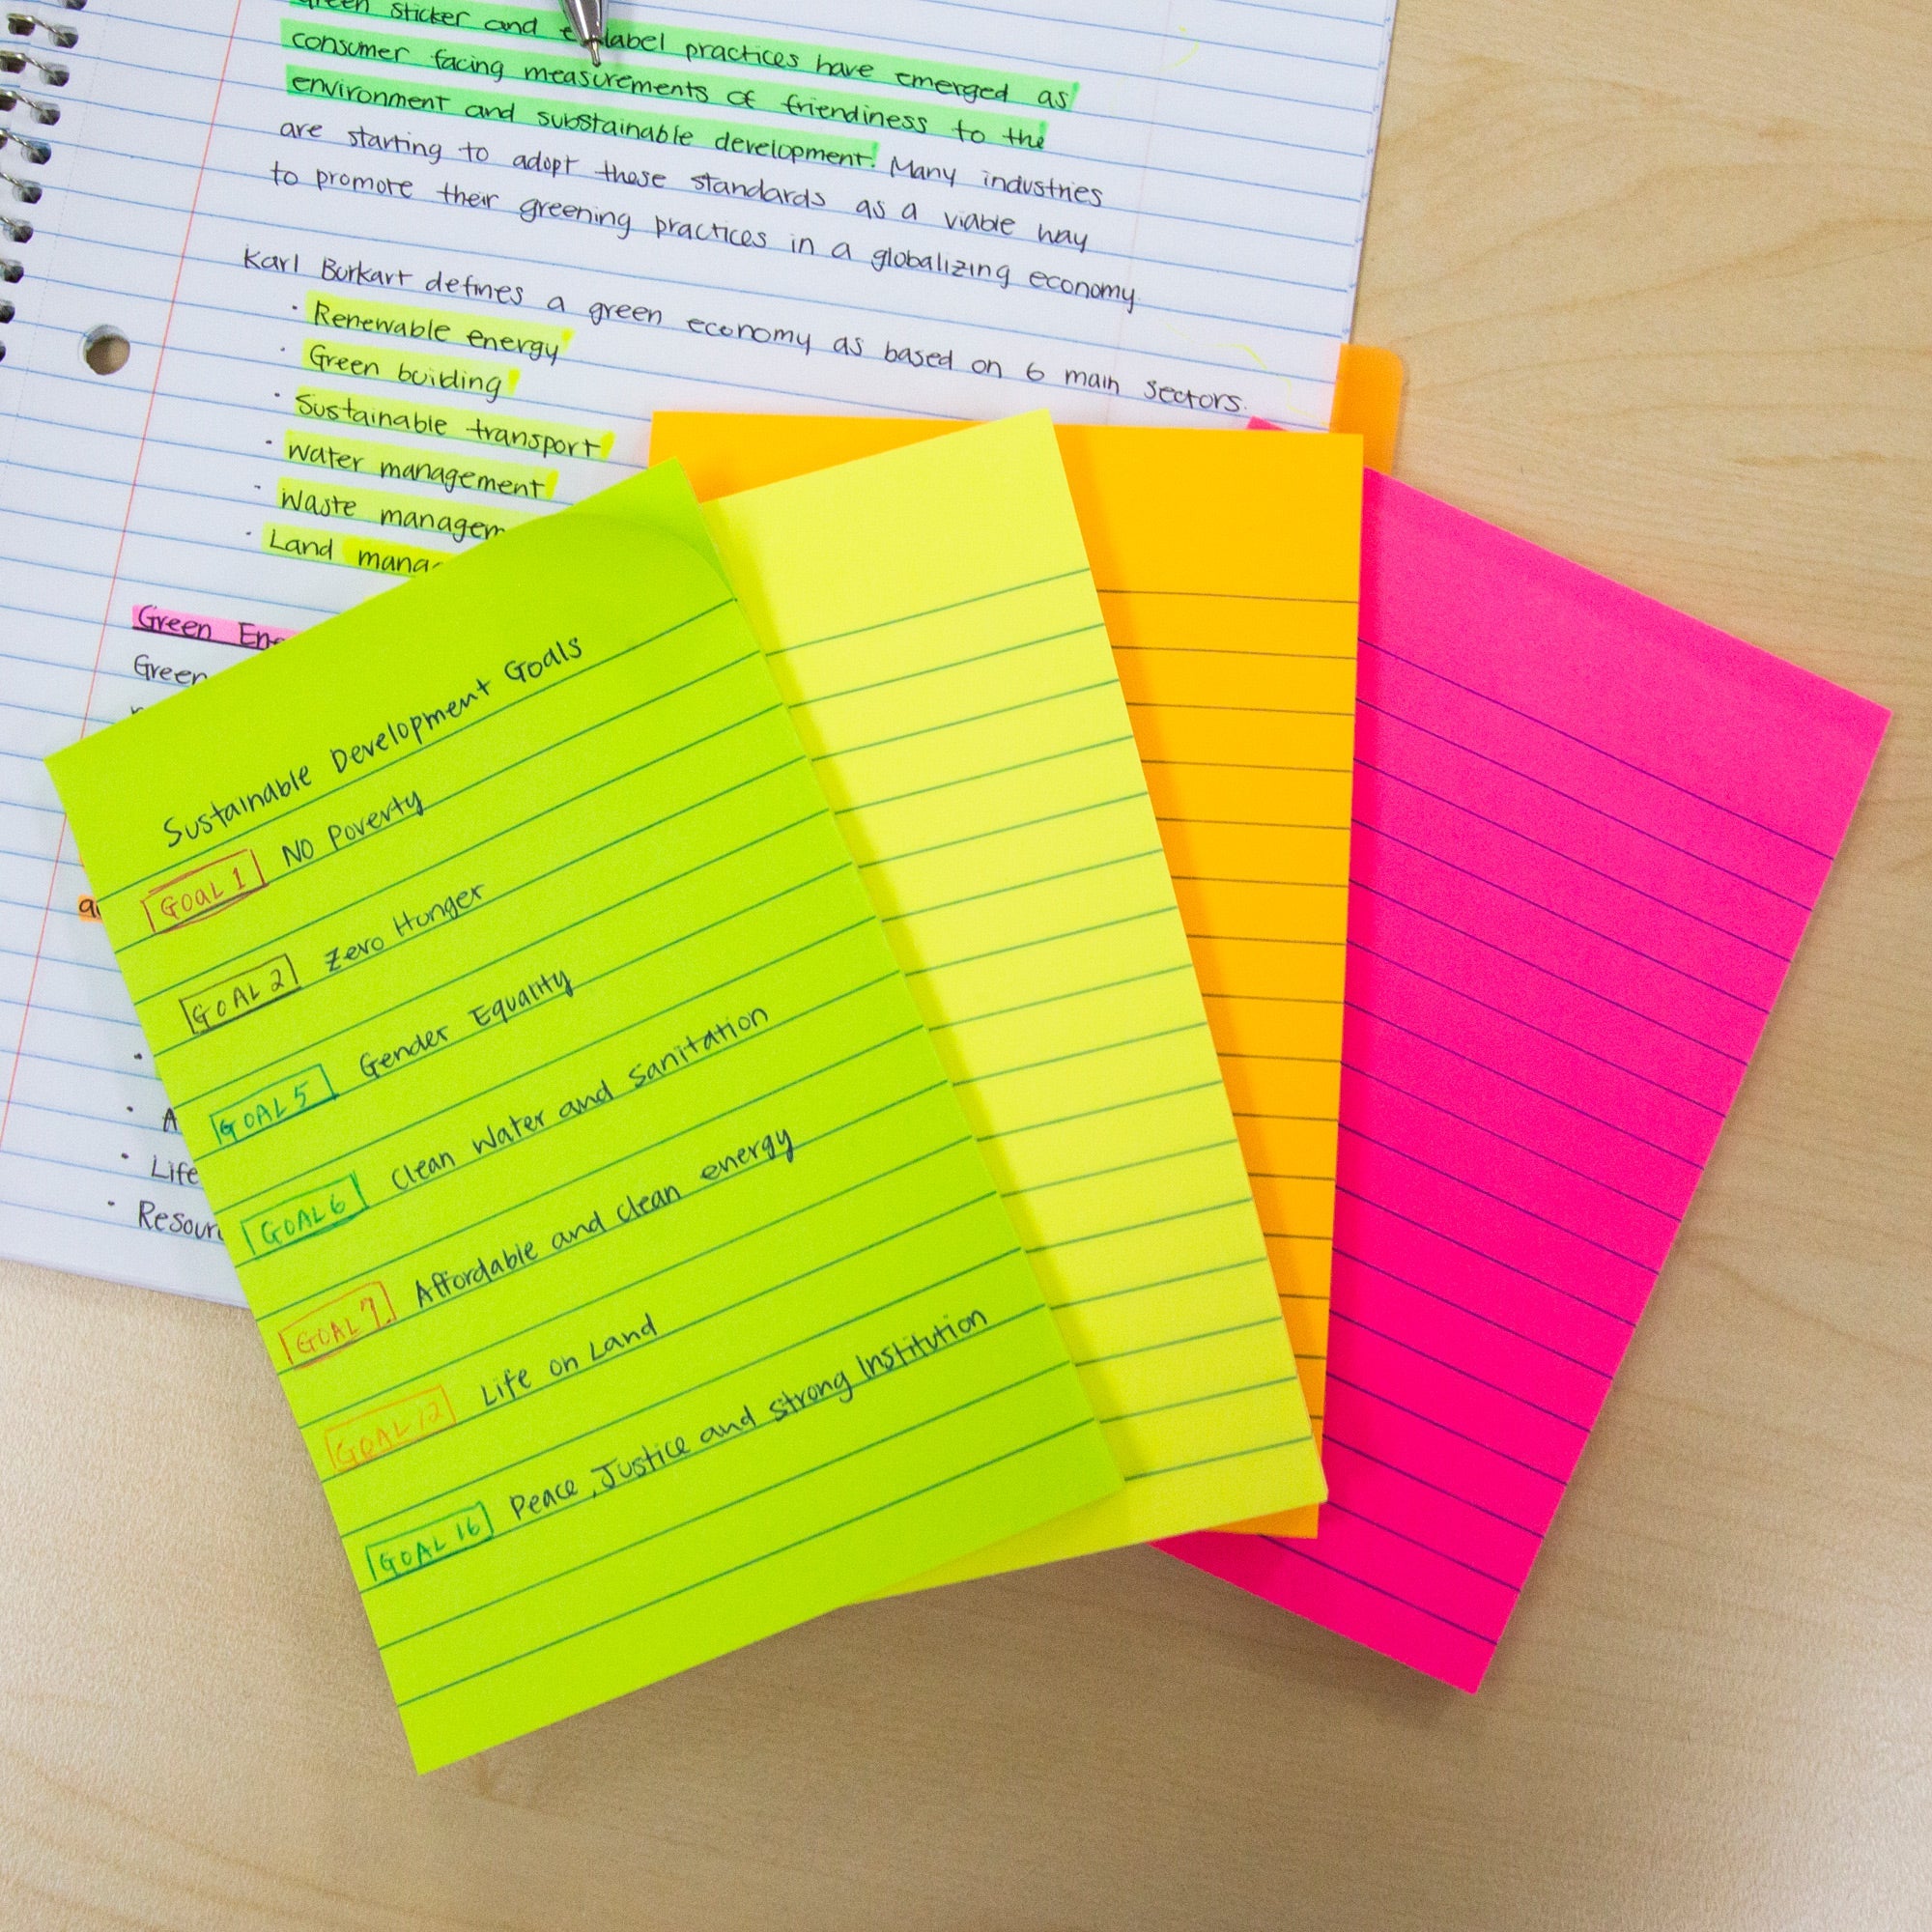 green sticker and label practices have emerged as
consumer facing measurements of friendiness to the
environment and substainable development. Many industries
are starting to adopt these standards as a viable way
to promote their greening practices in a globalizing economy
Karl Burkart defines a green economy as based on 6 main sectors.
· Renewable energy
· Green building
· Sustainable transport
· water management
· Waste managem
· Land mana
Green Ene
Green
· A
· Life
· Resour
Sustainable Development Goals
GOAL 1 NO Poverty
GOAL 2 Zero Hunger
GOAL 5 Gender Equality
GOAL 6 Clean Water and Sanitation
GOAL 7 Affordable and clean energy
GOAL 12 Life on Land
GOAL 16 Peace, Justice and strong Institution